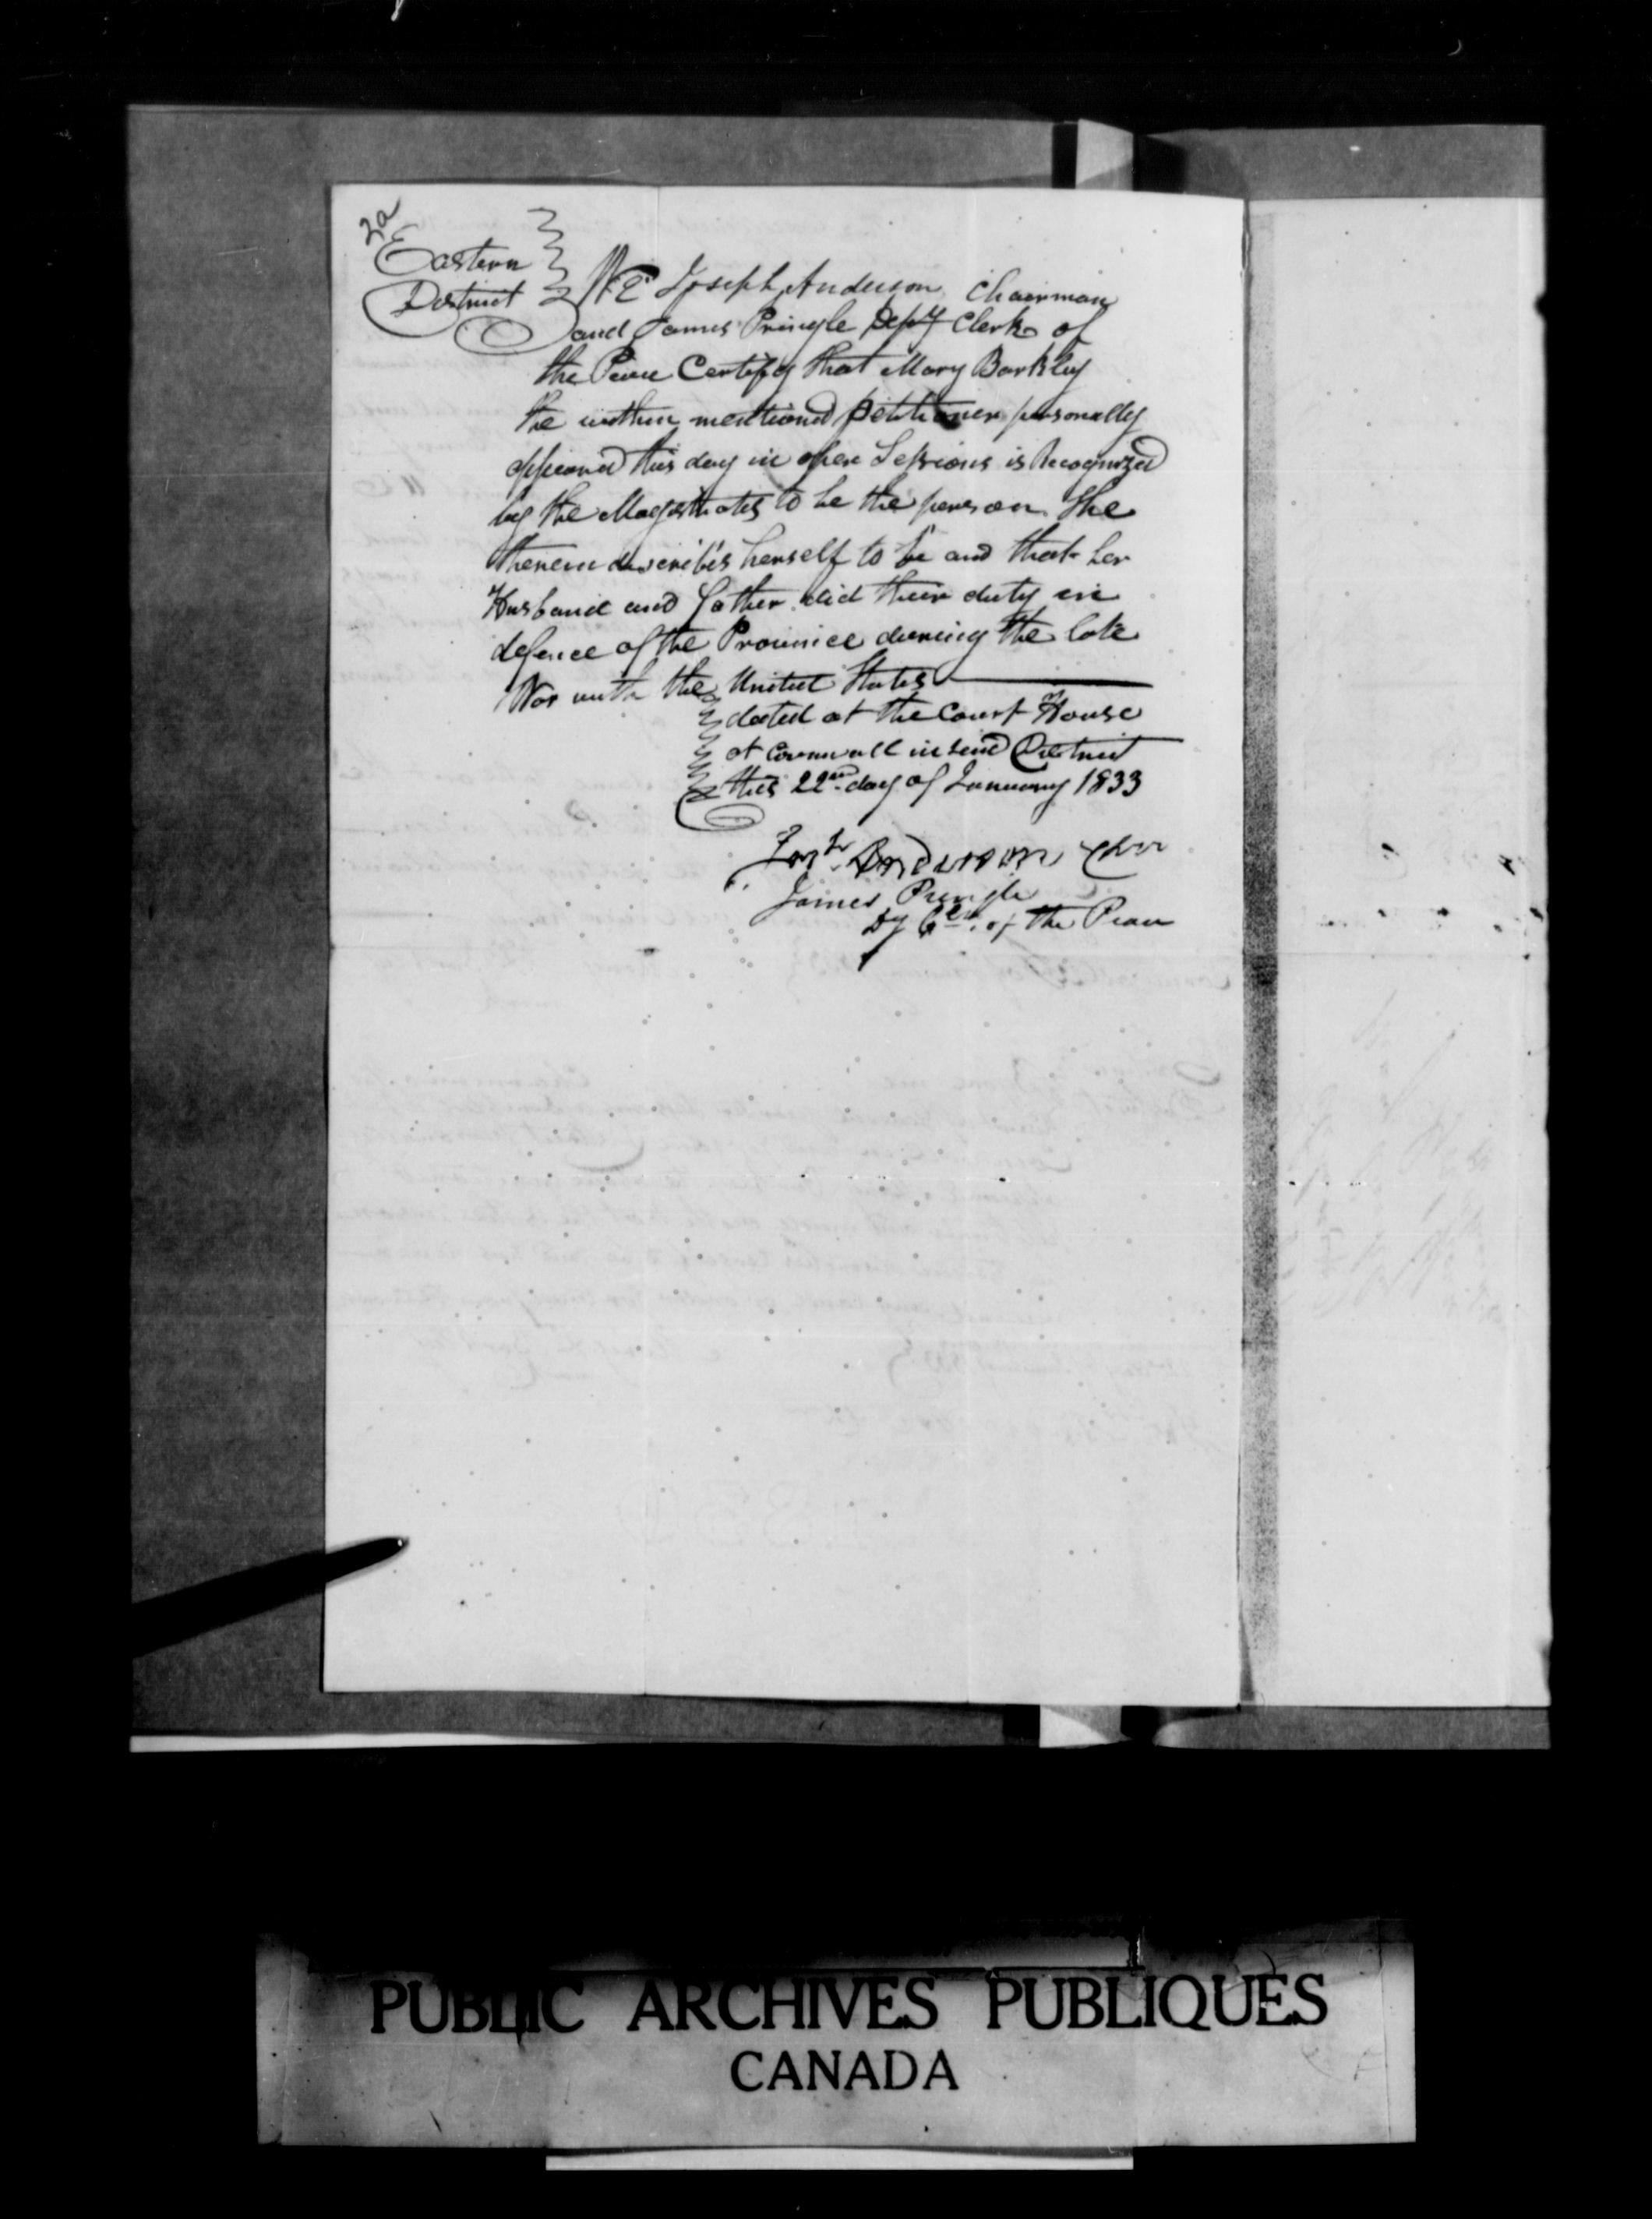 2a
Eastern
District
We Joseph Anderson Chairman
and James Pringle Depy Clerk of
the Peace Certify that Mary Barkley
the within mentioned petitioner personally
appeared this day in open Sessions is Recognized
by the Magistrates to be the person She
therein describes herself to be and that her
Husband and Father did their duty in
defence of the Province during the late
War with the United States
dated at the Court House
at Cornwall in said District
this 22nd day of January 1833
Josh Anderson Chn
James Pringle
Dy Clk. of the Peace
PUBLIC ARCHIVES PUBLIQUES
CANADA